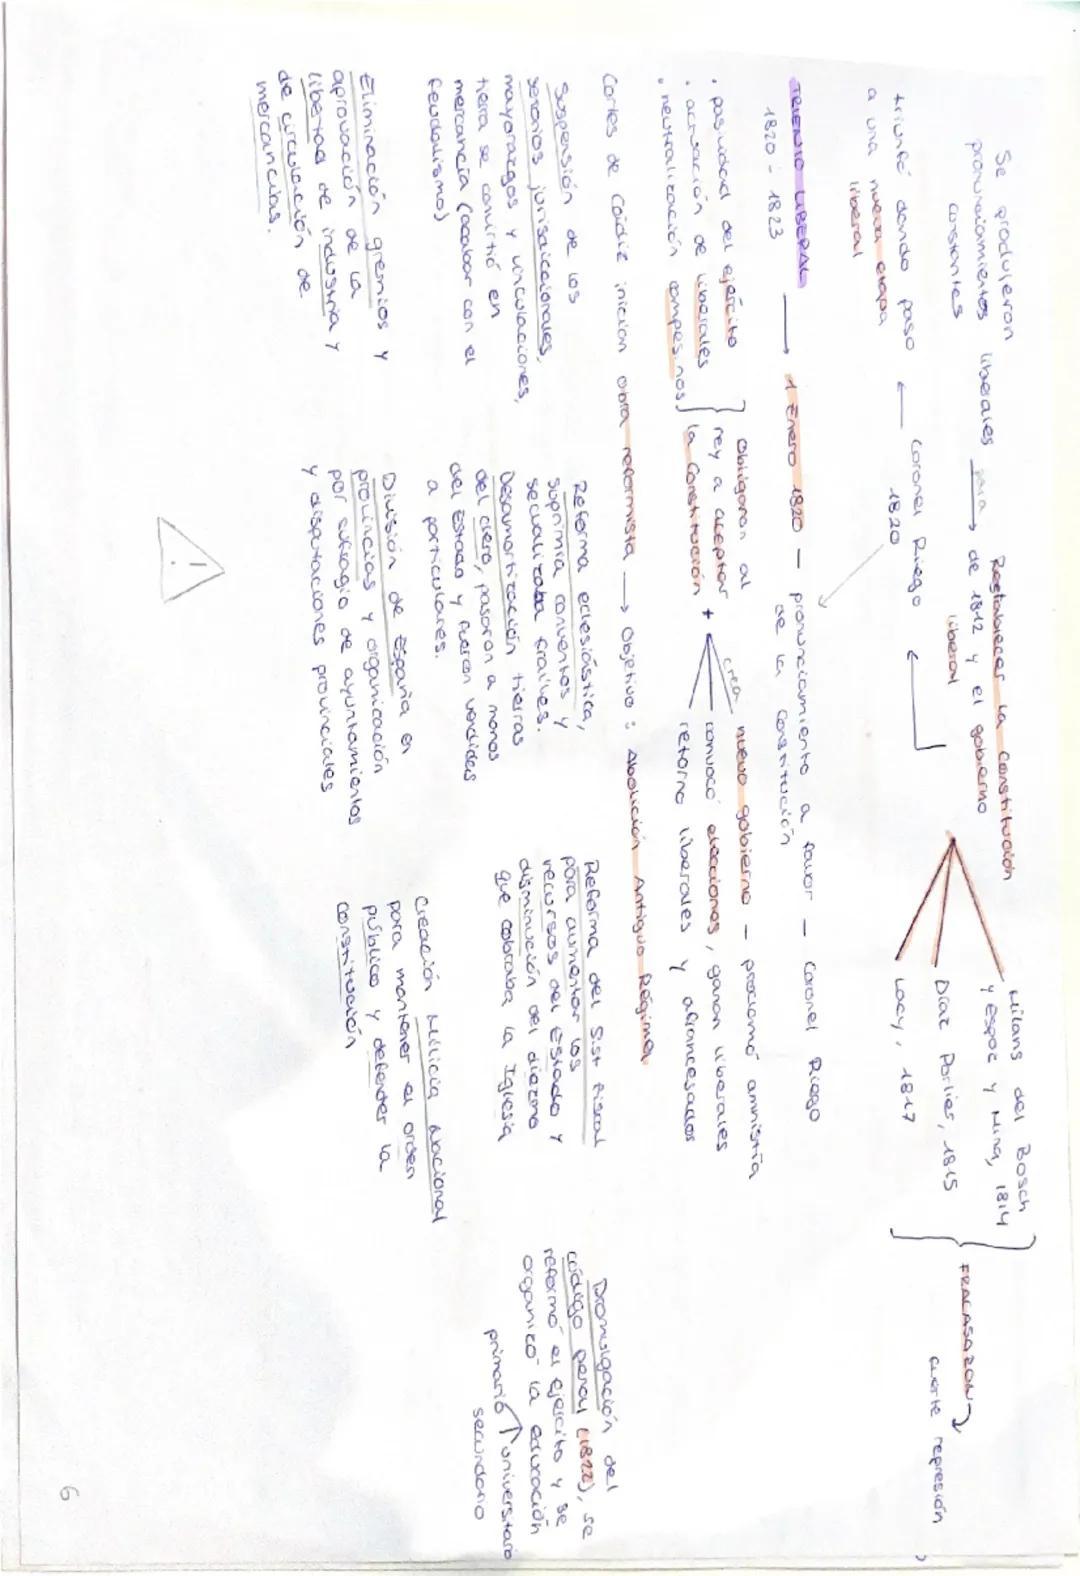 Se produjeron
pronunciamientos liberales para → de 1812 y el gobierno
constantes
Restablecer la Constitución
liberal
Milans del Bosch
y Espoz y Mina, 1814
Díaz Porlier, 1815
Lacy, 1817
FRACASARON
fuerte represión
triunfó dando paso ← Coronel Riego ←
a una nueva etapa
liberal
1820
TRIENIO LIBERAL → 1 Enero 1820 - pronunciamiento a favor - Coronel Riego
1820 - 1823
de la Constitución
· pasividad del ejército
· actuación de liberales
· neutralización campesinos
obligaron al
rey a aceptar +
la Constitución
crea
nuevo gobierno - proclamó amnistía
convocó elecciones, ganan liberales
retorno liberales y afrancesados
Cortes de Cádiz inician obra reformista → Objetivo: Abolición Antiguo Régimen
Suspensión de los
señoríos jurisdiccionales,
mayorazgos y vinculaciones,
tierra se convirtió en
mercancía (acabar con el
feudalismo)
Reforma eclesiástica,
suprimía conventos y
secualizaba frailes.
Desamortización tierras
del clero, pasaron a manos
del Estado y fueron vendidas
a particulares.
Reforma del sist fiscal
para aumentar los
recursos del Estado y
disminución del diezmo
que cobraba la Iglesia
Promulgación del
código penal (1822), se
reformó el ejército y se
organizó la educación
primaria universitario
secundario
Eliminación gremios y
aprovación de la
libertad de industria y
de circulación de
mercancías.
División de España en
provincias y organización
por sufragio de ayuntamientos
y disputaciones provinciales
Creación Milicia Nacional
para mantener el orden
público y defender la
constitución
!
6